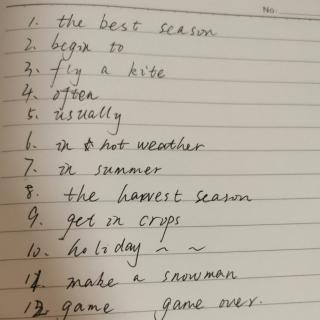 No.
1. the best season
2. begin to
3. fly a kite
4. often
5. usually
6. in hot weather
7. in summer
8. the harvest season
9. get in crops
10. holiday ~ ~
11. make a snowman
12. game game over.